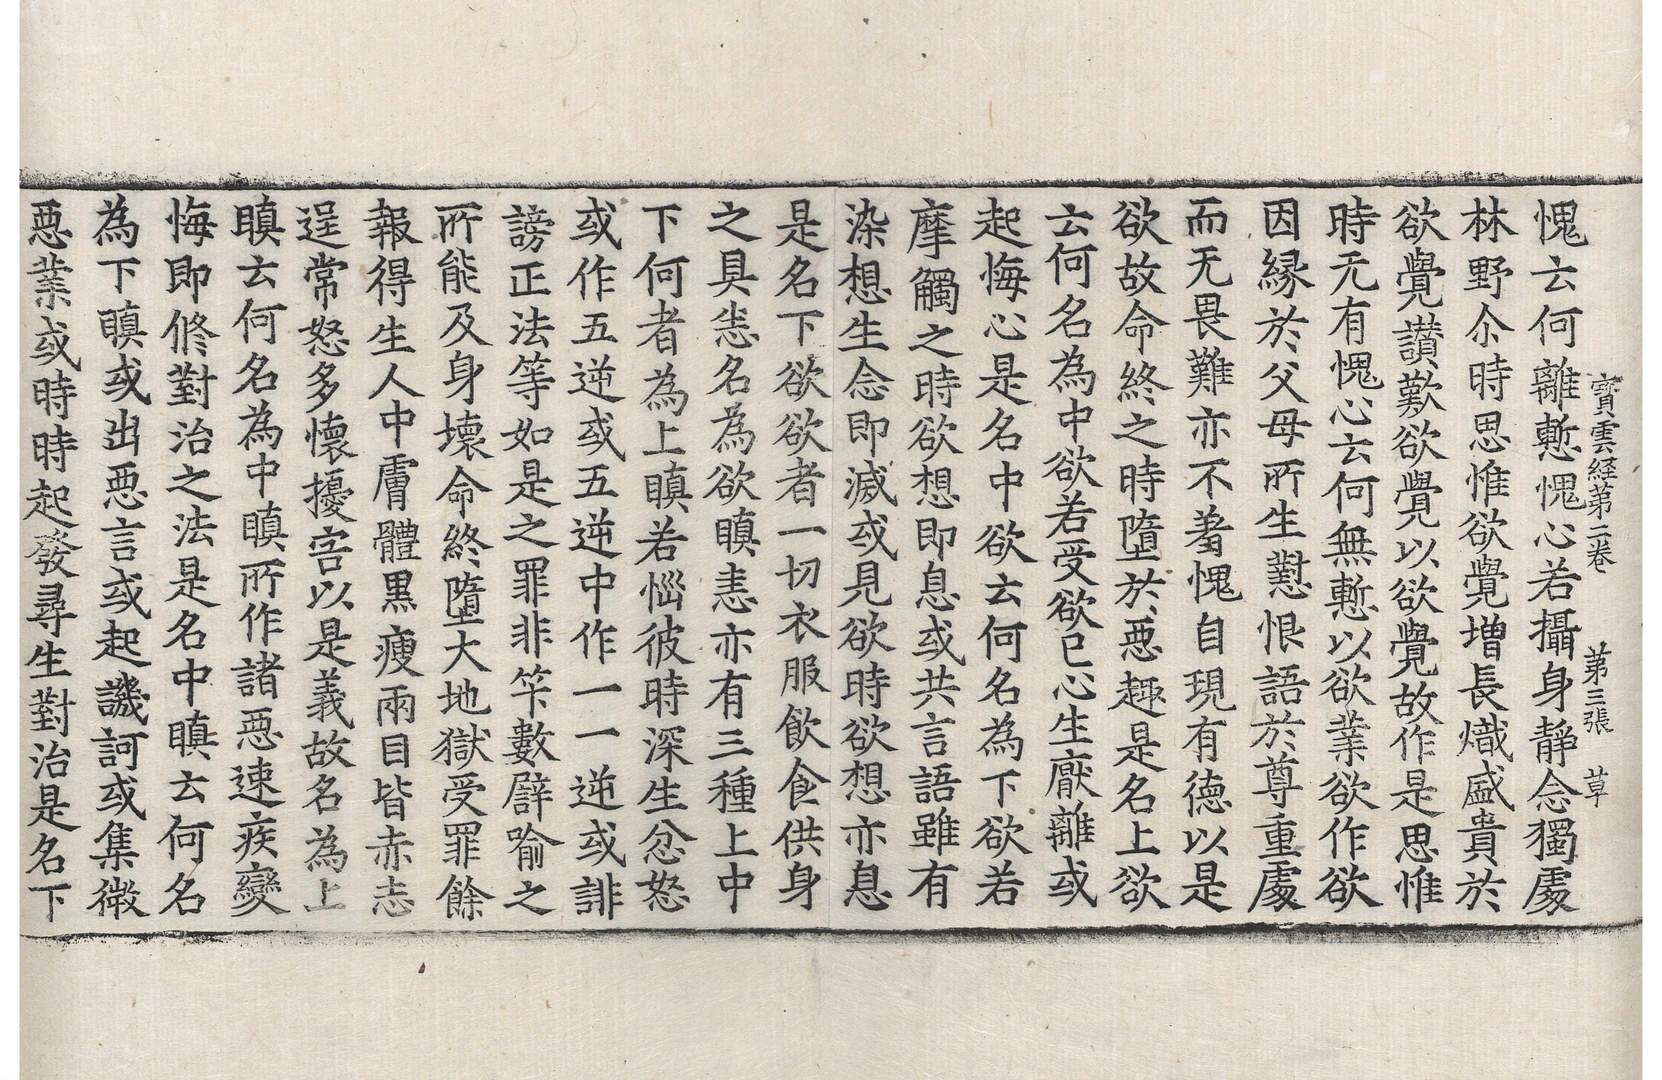 寳雲経苐二卷 苐三張 草
愧云何離慙愧心若攝身靜念獨處
林野尒時思惟欲覺增長熾盛貴於
欲覺讃歎欲覺以欲覺故作是思惟
時无有愧心云何無慙以欲業欲作欲
因緣於父母所生懟恨語於尊重處
而无畏難亦不羞愧自現有德以是
欲故命終之時墮於惡趣是名上欲
云何名為中欲若受欲已心生厭離或
起悔心是名中欲云何名為下欲若
摩觸之時欲想即息或共言語雖有
染想生念即滅或見欲時欲想亦息
是名下欲欲者一切衣服飲食供身
之具悉名為欲瞋恚亦有三種上中
下何者為上瞋若惱彼時深生忿怒
或作五逆或五逆中作一一逆或誹
謗正法等如是之罪非笇數譬喻之
所能及身壞命終墮大地獄受罪餘
報得生人中膚體黒瘦兩目皆赤志
逞常怒多懷擾害以是義故名為上
瞋云何名為中瞋所作諸惡速疾變
悔即修對治之法是名中瞋云何名
為下瞋或出惡言或起譏訶或集微
惡業或時時起發尋生對治是名下